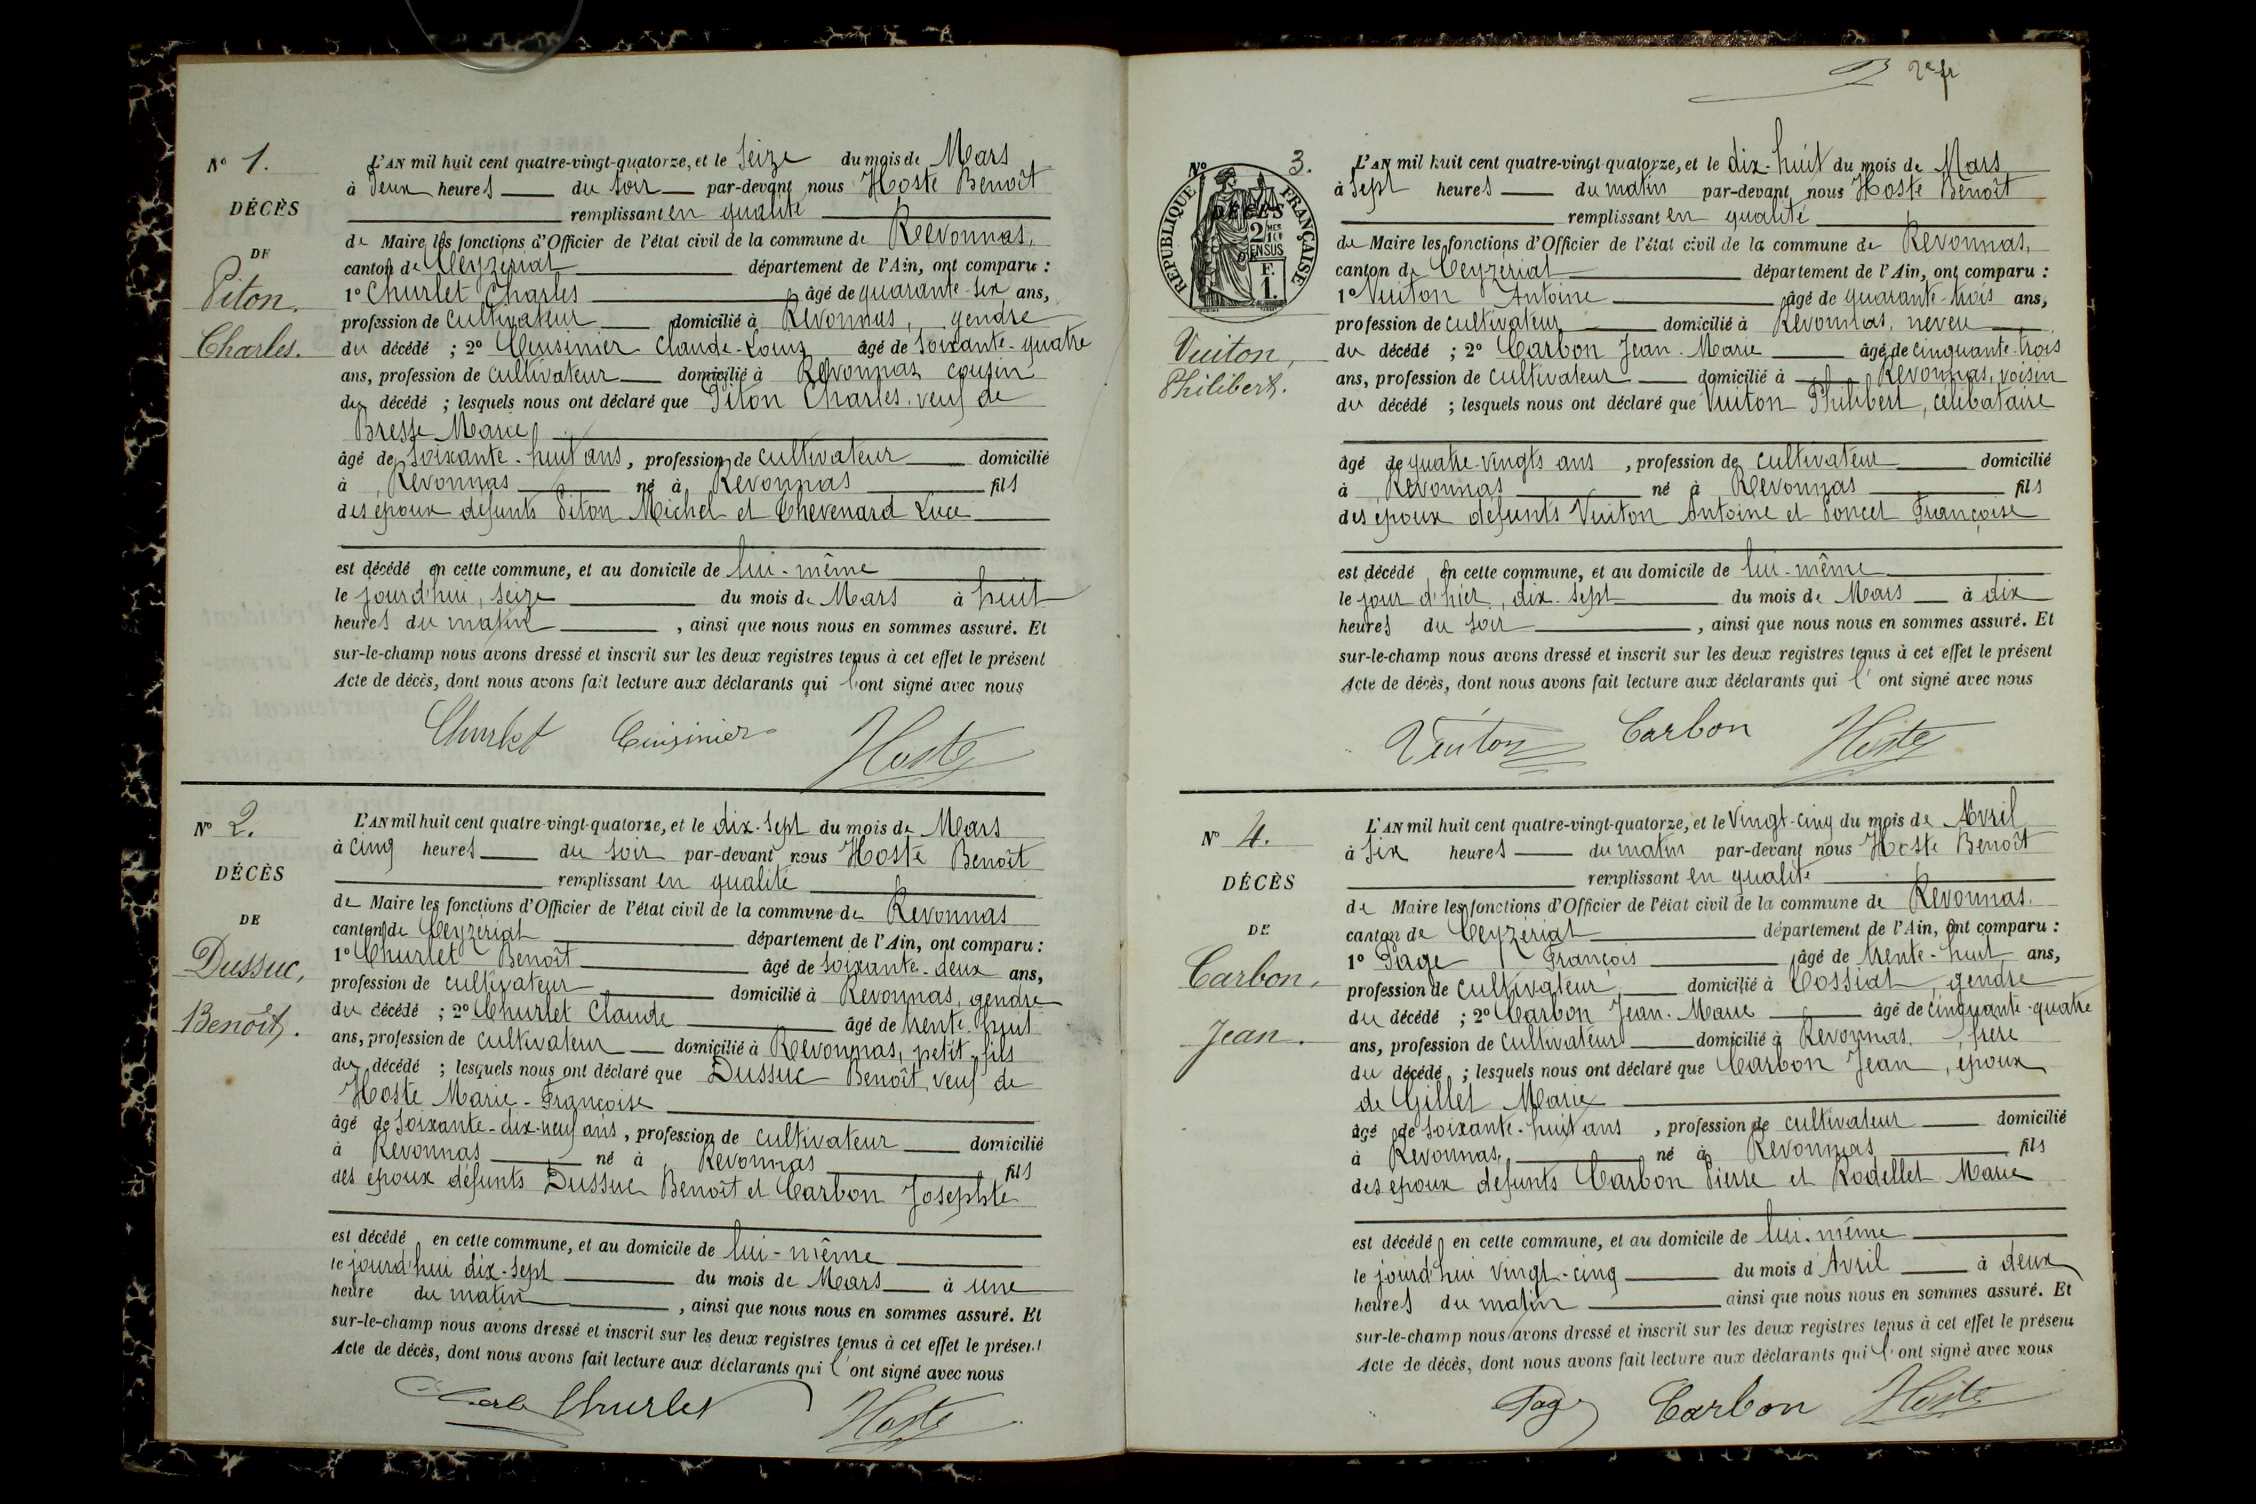 N° 1.
DÉCÈS
DE
Piton.
Charles.
L'AN mil huit cent quatre-vingt-quatorze, et le seize du mois de Mars
à deux heures du soir par-devant nous Hoste Benoît
remplissant en qualité
de Maire les fonctions d'Officier de l'état civil de la commune de Revonnas,
canton de Ceyzériat département de l'Ain, ont comparu :
1° Churlet Charles âgé de quarante-six ans,
profession de cultivateur domicilié à Revonnas, gendre
du décédé ; 2° Cuisinier Claude-Louis âgé de soixante-quatre
ans, profession de cultivateur domicilié à Revonnas cousin
du décédé ; lesquels nous ont déclaré que Piton Charles, veuf de
Bresse Marie
âgé de soixante-huit ans, profession de cultivateur domicilié
à Revonnas né à Revonnas fils
des époux défunts Piton Michel et Chevenard Luce
est décédé en cette commune, et au domicile de lui-même
le jourd'hui, seize du mois de Mars à huit
heures du matin, ainsi que nous nous en sommes assuré. Et
sur-le-champ nous avons dressé et inscrit sur les deux registres tenus à cet effet le présent
Acte de décès, dont nous avons fait lecture aux déclarants qui l'ont signé avec nous
Churlet Cuisinier Hoste
N° 2.
DÉCÈS
DE
Dussuc,
Benoît.
L'AN mil huit cent quatre-vingt-quatorze, et le dix-sept du mois de Mars
à cinq heures du soir par-devant nous Hoste Benoît
remplissant en qualité
de Maire les fonctions d'Officier de l'état civil de la commune de Revonnas
canton de Ceyzériat département de l'Ain, ont comparu :
1° Churlet Benoît âgé de soixante-deux ans,
profession de cultivateur domicilié à Revonnas, gendre
du décédé ; 2° Churlet Claude âgé de trente-huit
ans, profession de cultivateur domicilié à Revonnas, petit-fils
du décédé ; lesquels nous ont déclaré que Dussuc Benoît, veuf de
Hoste Marie-Françoise
âgé de soixante-dix-neuf ans, profession de cultivateur domicilié
à Revonnas né à Revonnas fils
des époux défunts Dussuc Benoît et Carbon Josephte
est décédé en cette commune, et au domicile de lui-même
le jourd'hui dix-sept du mois de Mars à une
heure du matin, ainsi que nous nous en sommes assuré. Et
sur-le-champ nous avons dressé et inscrit sur les deux registres tenus à cet effet le présent
Acte de décès, dont nous avons fait lecture aux déclarants qui l'ont signé avec nous
Churlet Hoste
2e fr
N° 3.
RÉPUBLIQUE FRANÇAISE
DÉCÈS
DE
2 MES 1/2 EN SUS
F.
1.
Vuiton,
Philibert.
L'AN mil huit cent quatre-vingt-quatorze, et le dix-huit du mois de Mars
à sept heures du matin par-devant nous Hoste Benoît
remplissant en qualité
de Maire les fonctions d'Officier de l'état civil de la commune de Revonnas,
canton de Ceyzériat département de l'Ain, ont comparu :
1° Vuiton Antoine âgé de quarante-trois ans,
profession de cultivateur domicilié à Revonnas, neveu
du décédé ; 2° Carbon Jean-Marie âgé de cinquante-trois
ans, profession de cultivateur domicilié à Revonnas, voisin
du décédé ; lesquels nous ont déclaré que Vuiton Philibert, célibataire
âgé de quatre-vingts ans, profession de cultivateur domicilié
à Revonnas né à Revonnas fils
des époux défunts Vuiton Antoine et Poncet Françoise
est décédé en cette commune, et au domicile de lui-même
le jour d'hier, dix-sept du mois de Mars à dix
heures du soir, ainsi que nous nous en sommes assuré. Et
sur-le-champ nous avons dressé et inscrit sur les deux registres tenus à cet effet le présent
Acte de décès, dont nous avons fait lecture aux déclarants qui l'ont signé avec nous
Vuiton Carbon Hoste
N° 4.
DÉCÈS
DE
Carbon,
Jean.
L'AN mil huit cent quatre-vingt-quatorze, et le vingt-cinq du mois de Avril
à six heures du matin par-devant nous Hoste Benoît
remplissant en qualité
de Maire les fonctions d'Officier de l'état civil de la commune de Revonnas.
canton de Ceyzériat département de l'Ain, ont comparu :
1° Page François âgé de trente-huit ans,
profession de cultivateur domicilié à Cossiat, gendre
du décédé ; 2° Carbon Jean-Marie âgé de cinquante-quatre
ans, profession de cultivateur domicilié à Revonnas, frère
du décédé ; lesquels nous ont déclaré que Carbon Jean, époux
de Gillet Marie
âgé de soixante-huit ans, profession de cultivateur domicilié
à Revonnas, né à Revonnas fils
des époux défunts Carbon Pierre et Rodellet Marie
est décédé en cette commune, et au domicile de lui-même
le jourd'hui vingt-cinq du mois d'Avril à deux
heures du matin ainsi que nous nous en sommes assuré. Et
sur-le-champ nous avons dressé et inscrit sur les deux registres tenus à cet effet le présent
Acte de décès, dont nous avons fait lecture aux déclarants qui l'ont signé avec nous
Page Carbon Hoste